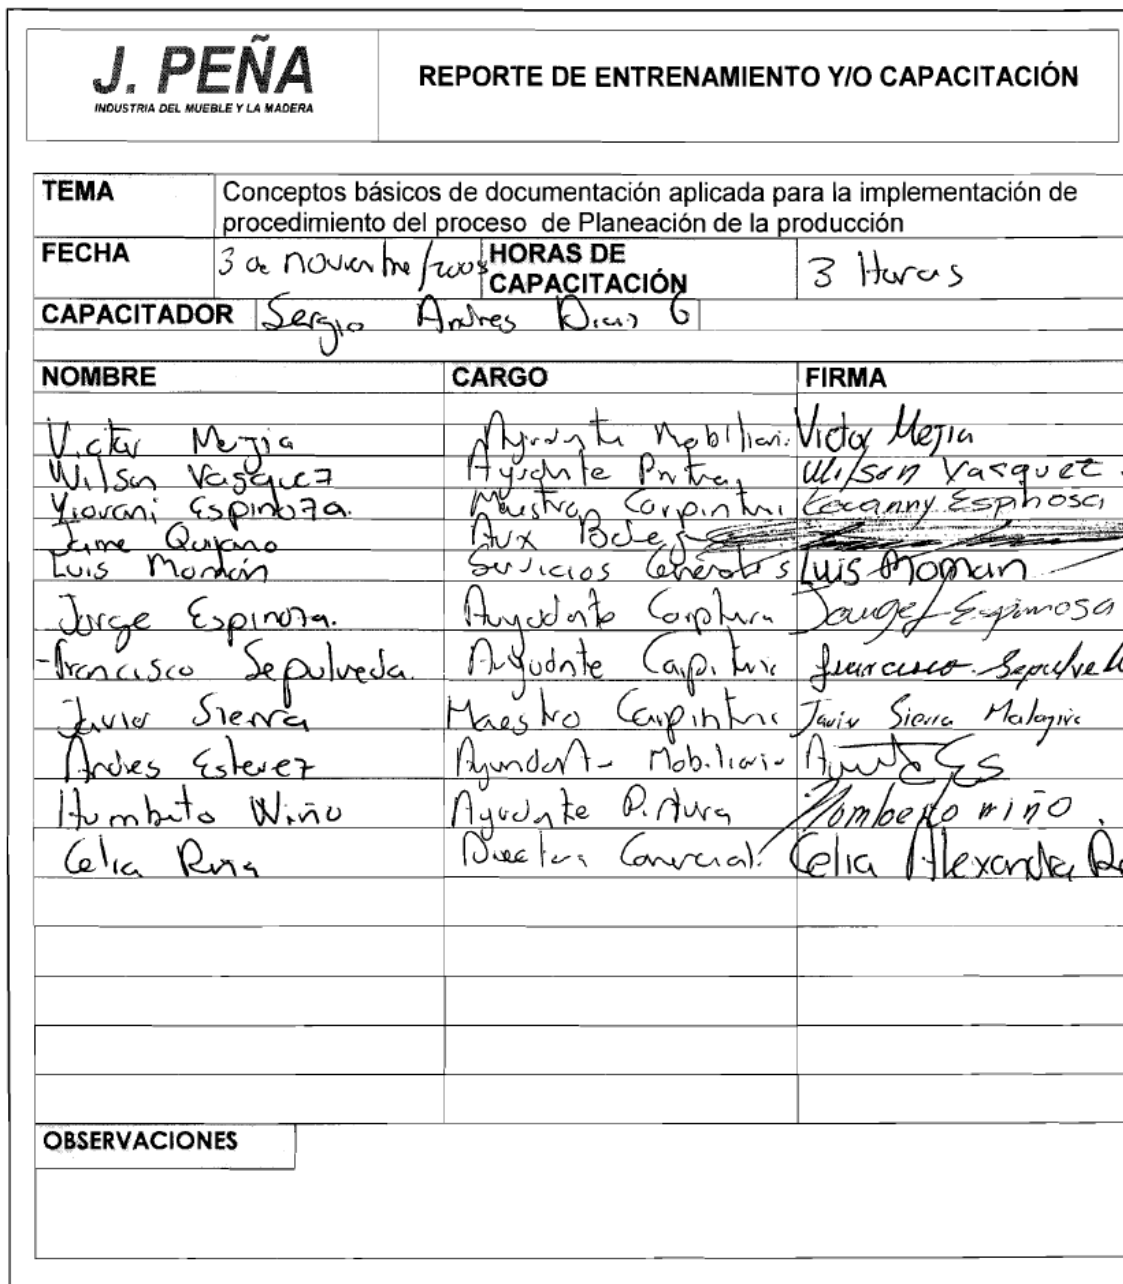 J. PEÑA
INDUSTRIA DEL MUEBLE Y LA MADERA
REPORTE DE ENTRENAMIENTO Y/O CAPACITACIÓN
TEMA Conceptos básicos de documentación aplicada para la implementación de
procedimiento del proceso de Planeación de la producción
FECHA 3 de noviembre / HORAS DE CAPACITACIÓN 3 Horas
CAPACITADOR Sergio Andres Diaz G
NOMBRE CARGO FIRMA
Victor Mejia Ayudante Mobiliari Victor Mejia
Wilson Vasquez Ayudante Pintura Wilson Vasquez
Yiovani Espinoza. Maestro Carpintri Espinosa
Jaime Quijano Aux Bodeg
Luis Servicios Generales Luis
Jorge Espinoza. Ayudante Espinosa
Francisco Sepulveda. Ayudante Francisco Sepulve
Javier Sierra Maestro Carpintri Javier Sierra
Andres Estevez Mobiliari
Humberto Niño Ayudante Pintura Homberto niño
Celia Directora Comercial. Celia Alexandra
OBSERVACIONES